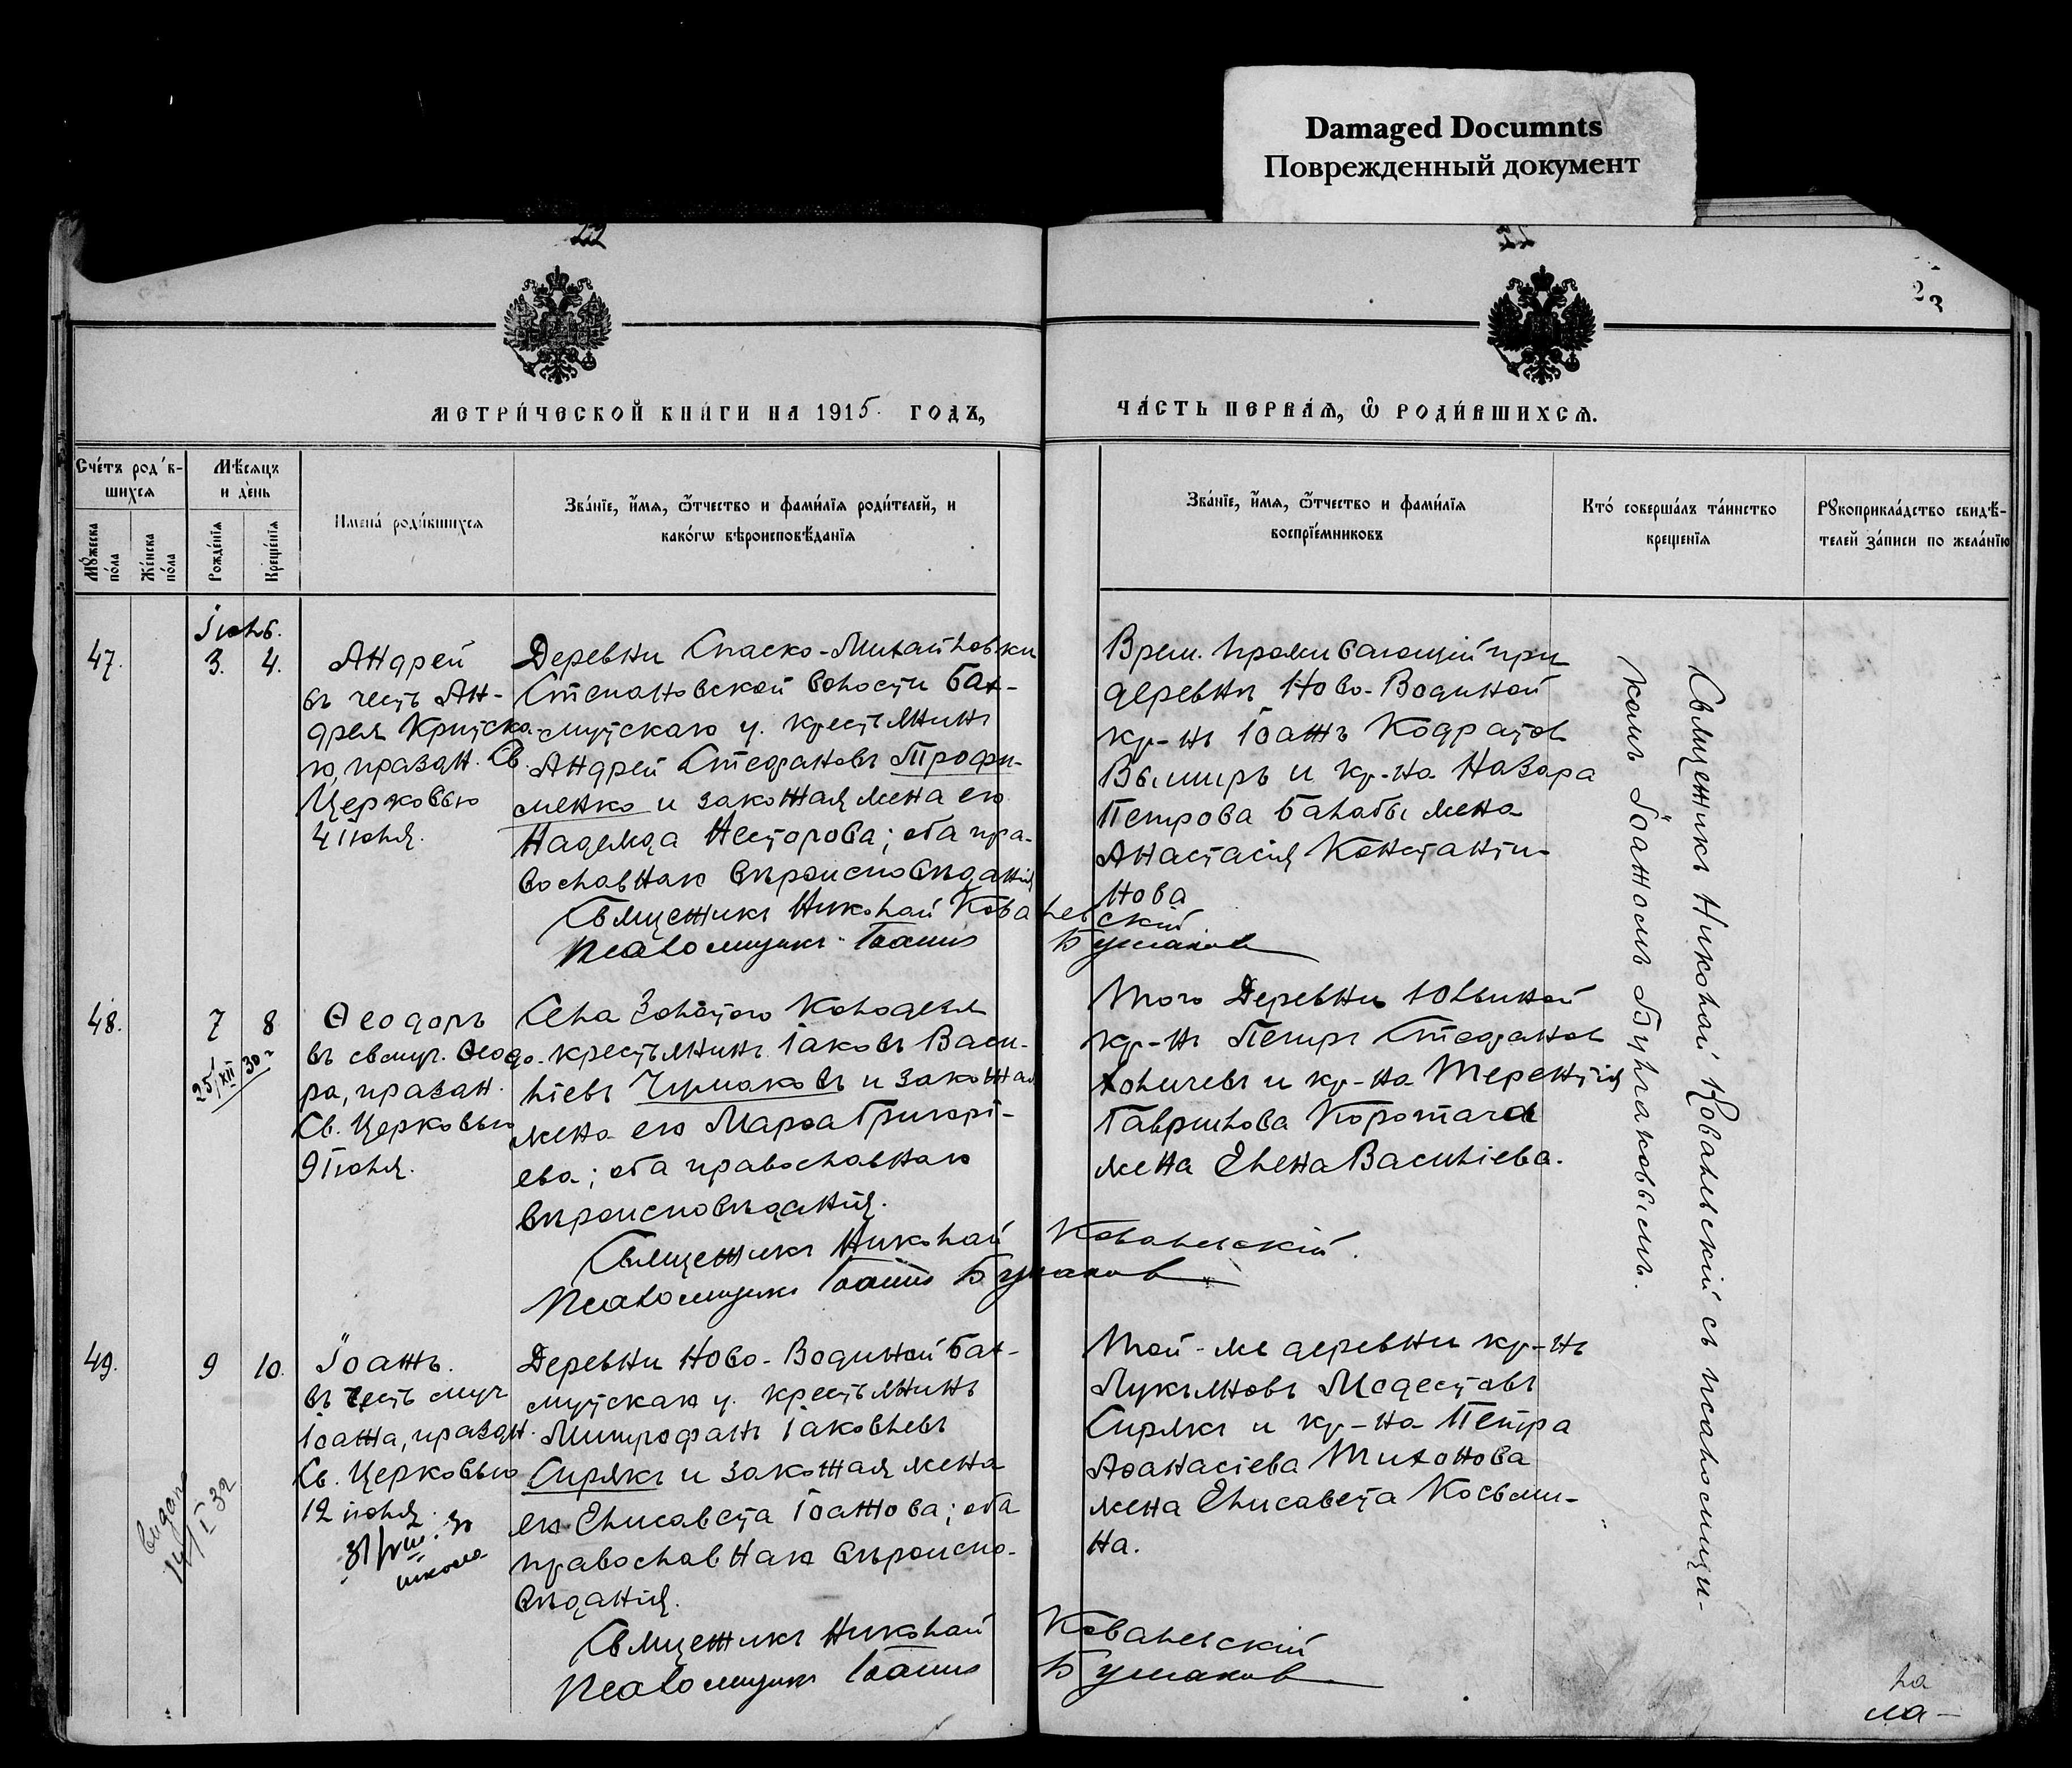 Damaged Documnts
Поврежденный документ
22
23
МЕТРИ́ЧЕСКОЙ КНИ́ГИ НА 1915. ГОДЪ,
ЧА́СТЬ ПЕРВА́Ѧ, Ѽ РОДИ́ВШИХСѦ.
Сче́тъ род҆́в-
шихсѧ
Мѹ́жеска по́ла
Же́нска по́ла
Мѣ́сѧцъ
и де́нь
Рожде́нїѧ
Креще́нїѧ
Имена̀ роди́вшихсѧ
Зва́нїе, и҆́мѧ, ѻ҆́тчество и фами́лїѧ роди́телей, и
како́гѡ вѣроисповѣ́данїѧ
Зва́нїе, и҆́мѧ, ѻ҆́тчество и фами́лїѧ
воспрїе́мниковъ
Кто́ соверша́лъ та́инство
креще́нїѧ
Рꙋкоприкла́дство свидѣ́-
телей за́писи по жела́нїю
Іюнь.
47.
3.
4.
Андрей
въ честь Ан-
дрея Критска-
го, празан. Св.
Церковью
4 Іюня.
Деревни Спаско-Михайловки
Степановской волости Бах-
мутскаго у. крестьянинъ
Андрей Стефановъ Трофи-
менко и законная жена его
Надежда Несторова; оба пра-
вославнаго вѣроисповѣданія
Священникъ Николай Ковалевскій
Псаломщикъ Іоаннъ Бушаков
Врем. проживающій при
деревнѣ Ново-Водиной
кр-нъ Іоаннъ Кодратов
Выширъ и кр-на Назара
Петрова Балабы жена
Анастасія Константи-
нова
Священникъ Николай Ковалевскій съ псаломщи-
комъ Іоанномъ Бушаковымъ.
48.
7
8
25/XII 30 г
Ѳеодоръ
въ св муч. Ѳеодо-
ра, празан.
Св. Церковью
9 Іюня.
Села Золотого Колодезя
крестьянинъ Іаковъ Васи-
ліевъ Чумаковъ и законная
жена его Марѳа Григорі-
ева; оба православнаго
вѣроисповѣданія.
Священникъ Николай Ковалевскій.
Псаломщикъ Іоаннъ Бушаков
Того Деревни
кр-нъ Петръ Стефанов
и кр-на Терентія
Гаврилова Коротача
жена Елена Василіева.
49.
9
10.
Іоаннъ.
въ честь муч
Іоанна, празан.
Св. Церковью
12 іюня.
31/VIII. 30
школа
Видано
14/I 32
Деревни Ново-Водиной Бах-
мутскаго у. крестьянинъ
Митрофанъ Іаковлевъ
Сирякъ и законная жена
его Елисавета Іоаннова; оба
православнаго вѣроиспо-
вѣданія.
Священникъ Николай Ковалевскій
Псаломщикъ Іоаннъ Бушаков
Той-же деревни кр-нъ
Лукьяновъ Модестовъ
Сирякъ и кр-на Петра
Аѳанасіева Тихонова
жена Елисавета Косьми-
на.
ла
ма-